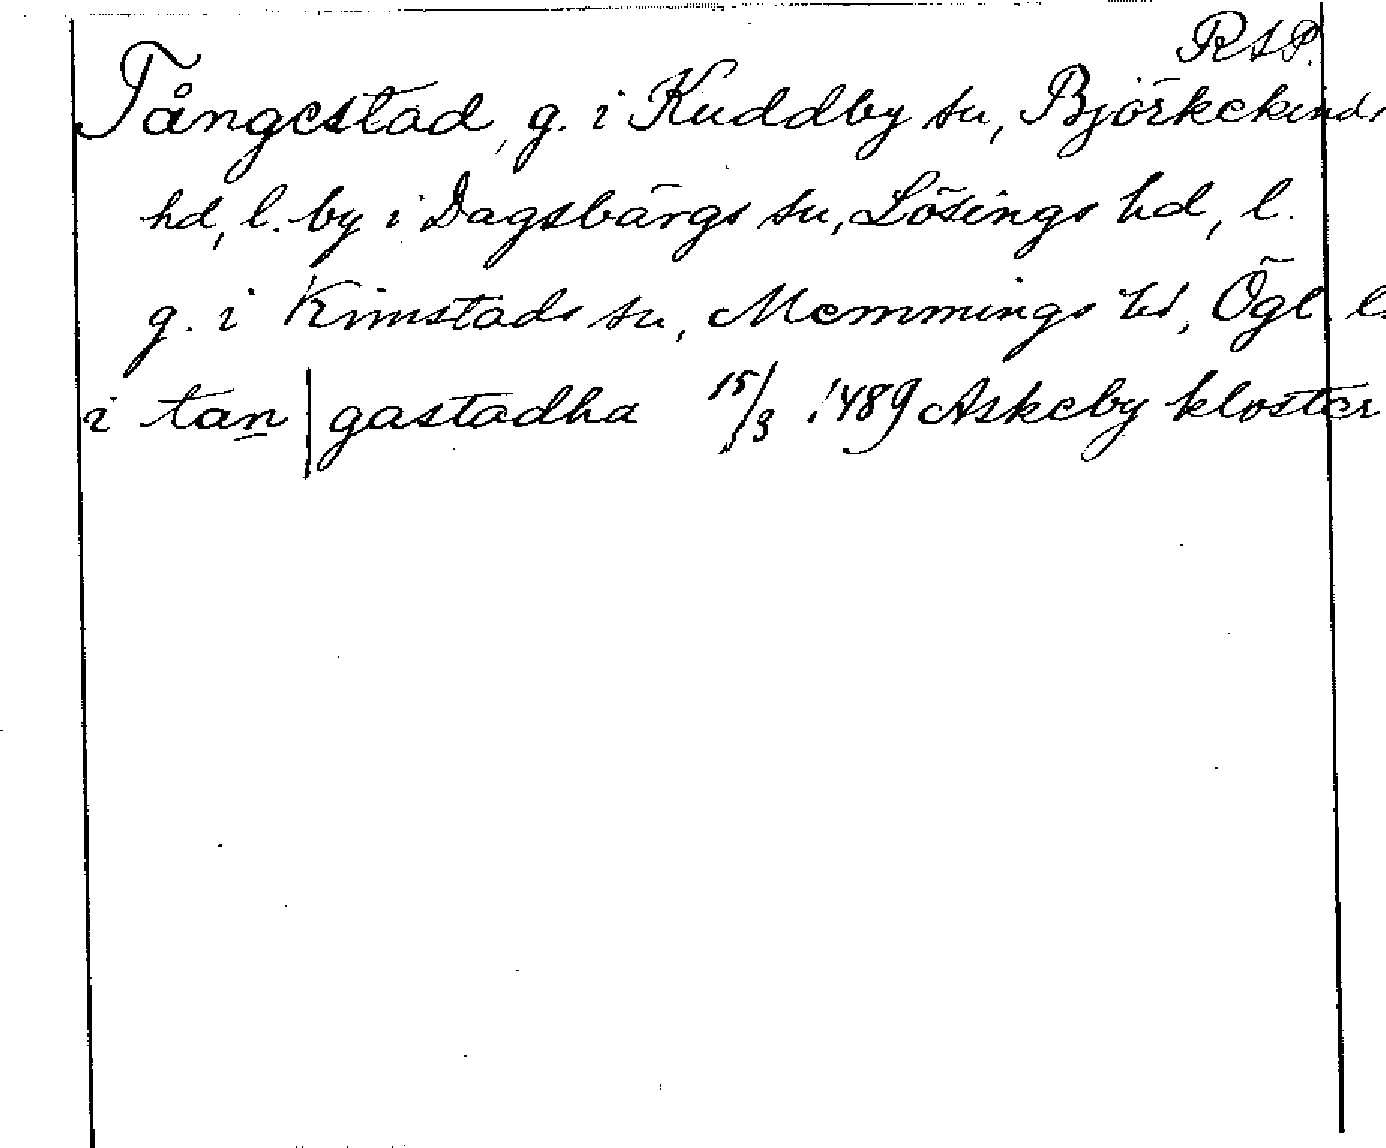 RAP.
Tångestad, g. i Kuddby sn, Björkekinds
hd, l. by i Dagsbärgs sn, Lösings hd, l.
g. i Kimstads sn, Memmings hd, Ögl l.
i tan|gastadha 15/3 1489 Askeby kloster